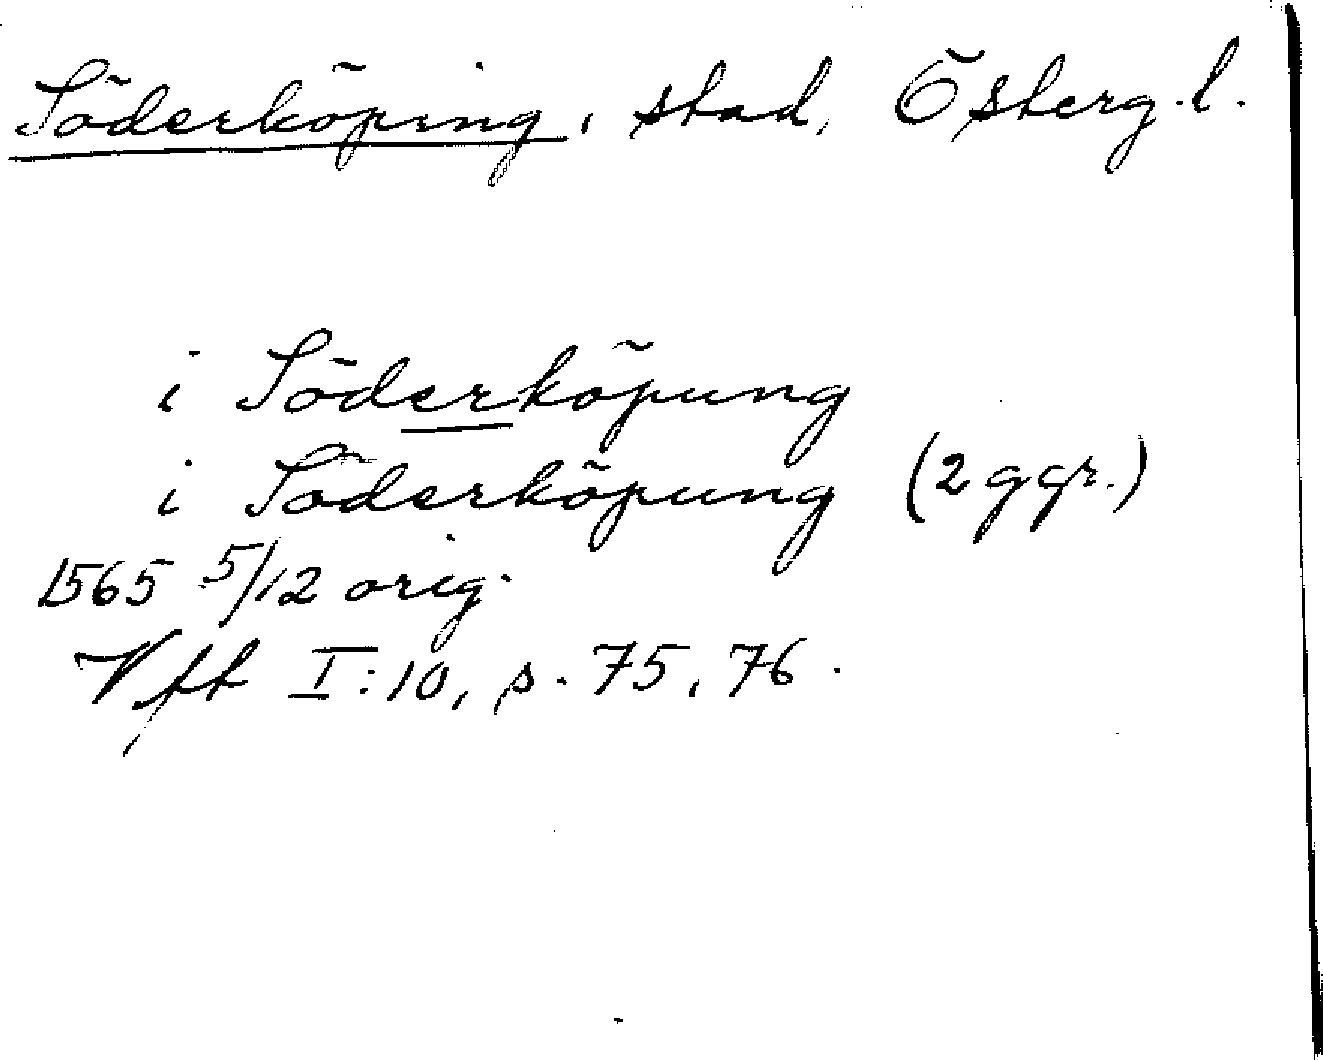 Söderköping, stad, Österg. l.
i Söderköpung
i Söderköpung (2 ggr.)
1565 5/12 orig.
Vff I:10, s. 75, 76.